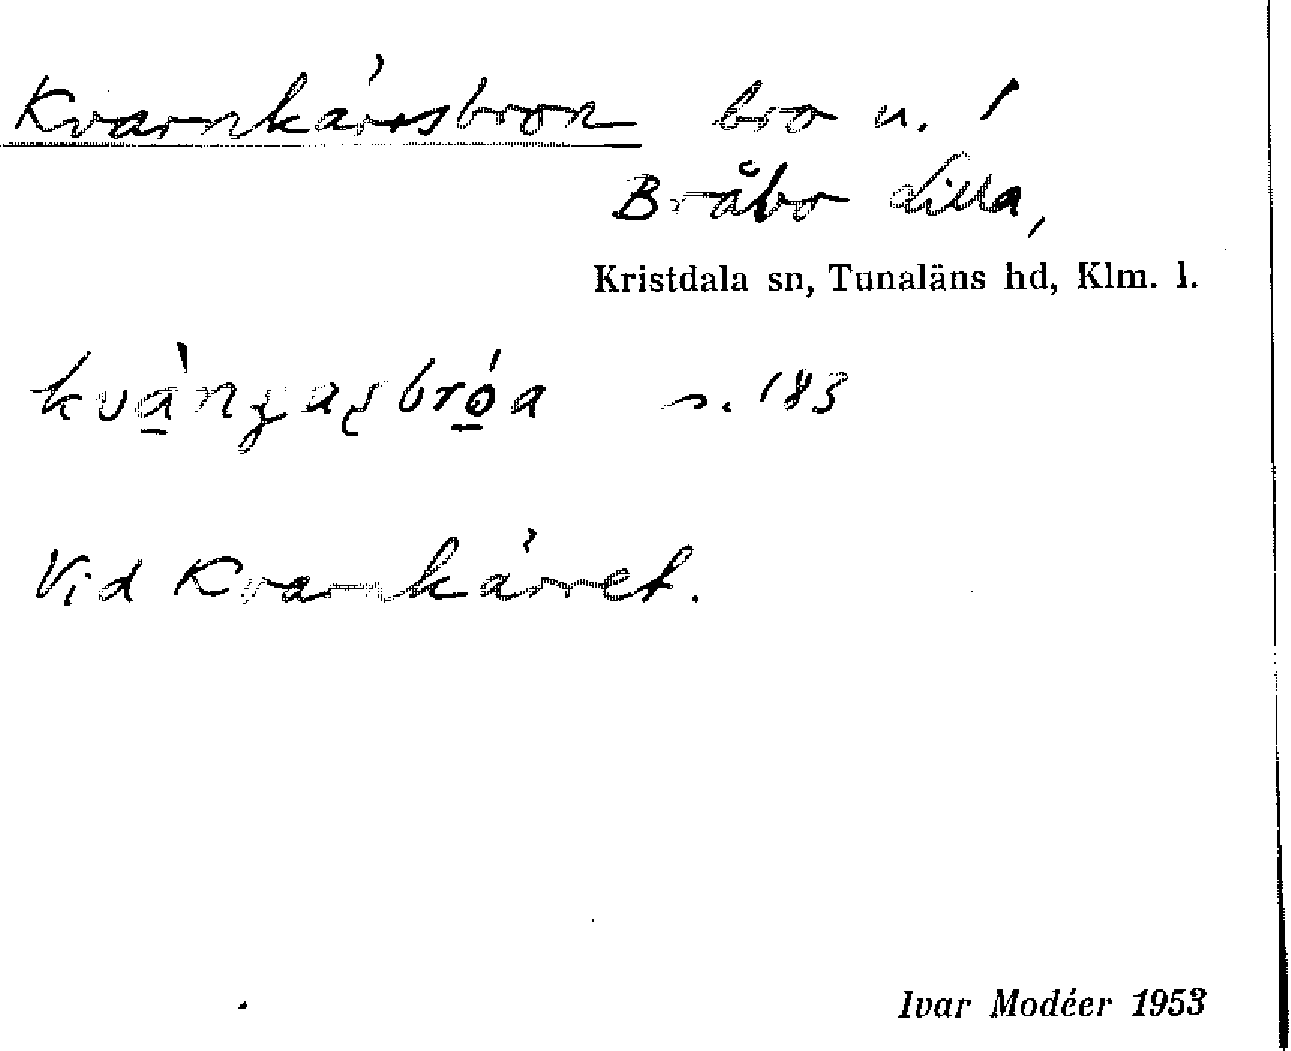 Kvarnkärrsbron bro u. /
Bråbo Lilla,
Kristdala sn, Tunaläns hd, Klm. l.
s. 183
Vid Kvarnkärret.
Ivar Modéer 1953